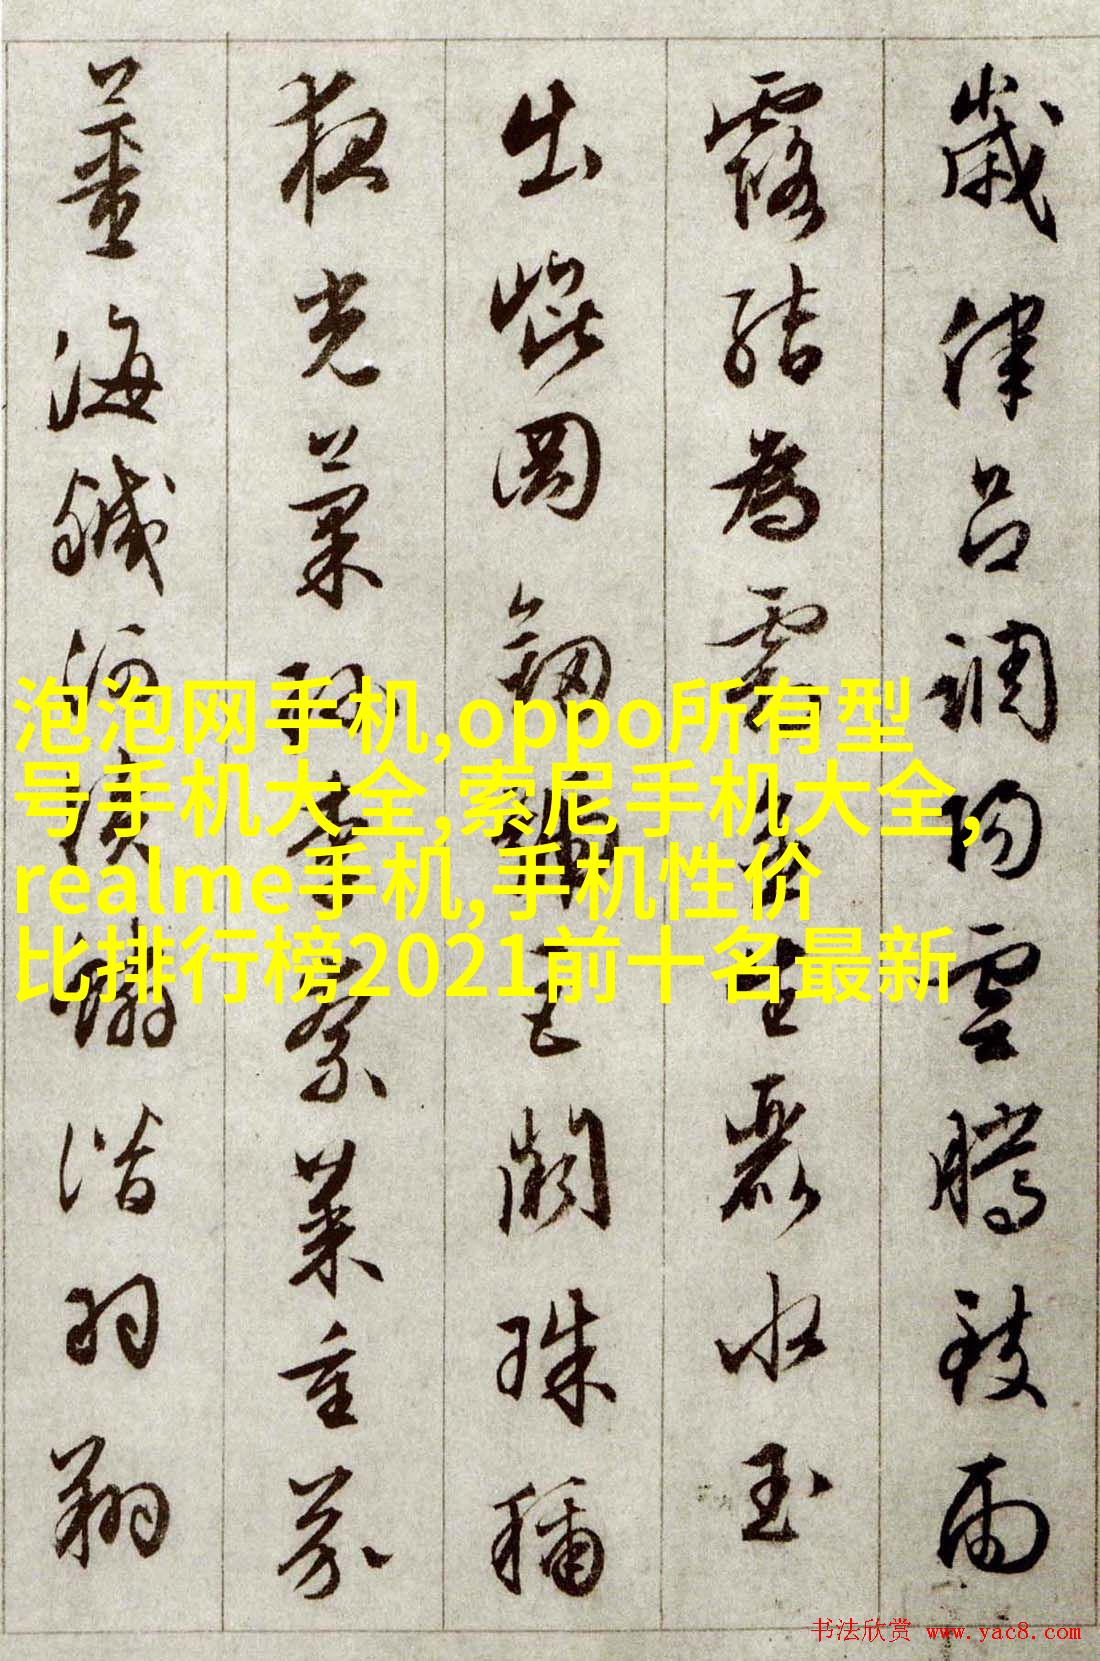 歲律呂調陽雲騰致雨
露結為霜金生麗水玉
出崐岡劒號巨闕珠稱
夜光菓珍李柰菜重芥
薑海鹹河淡鱗潛羽翔
泡泡网手机,oppo所有型
号手机大全,索尼手机大全,
realme手机,手机性价
比排行榜2021前十名最新
书法欣赏 www.yac8.com